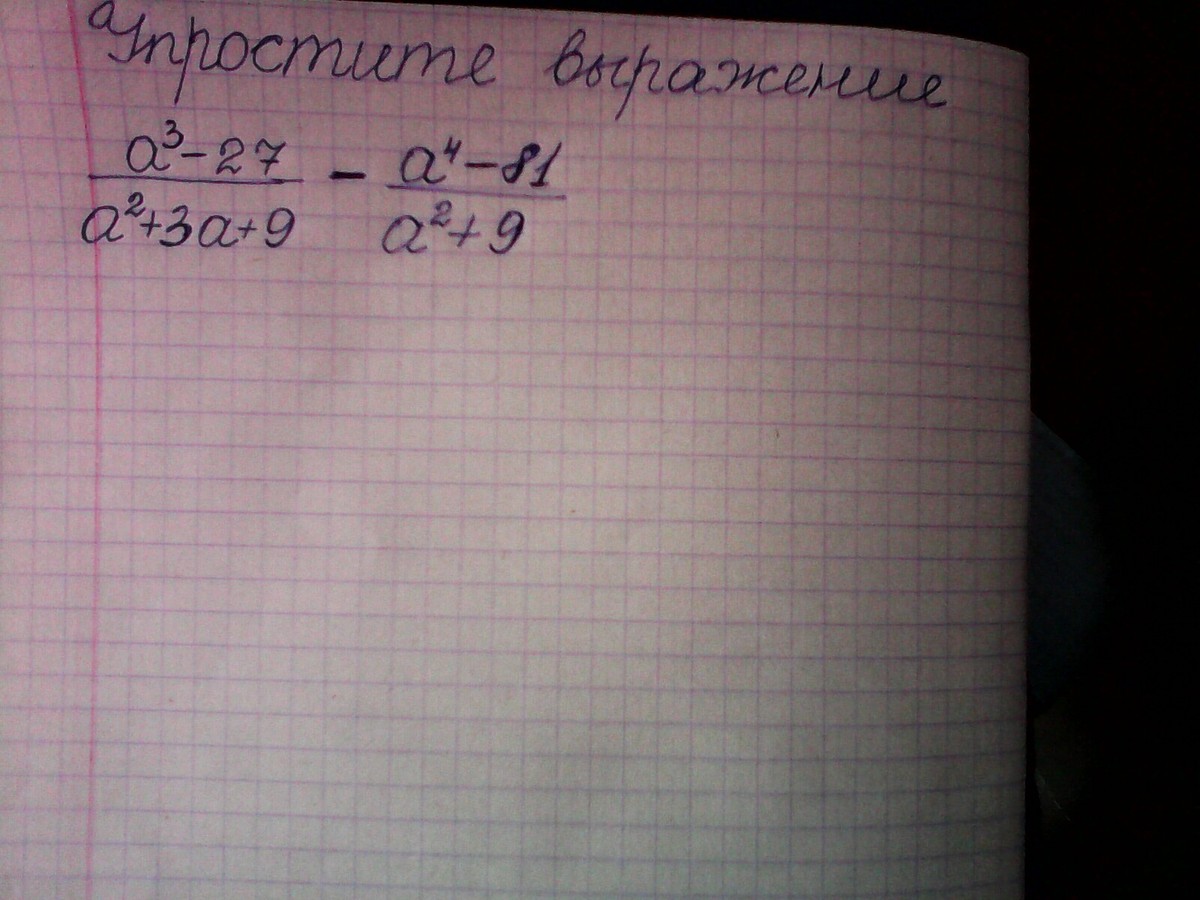 Упростите выражение
a³-27 / a²+3a+9 - a⁴-81 / a²+9